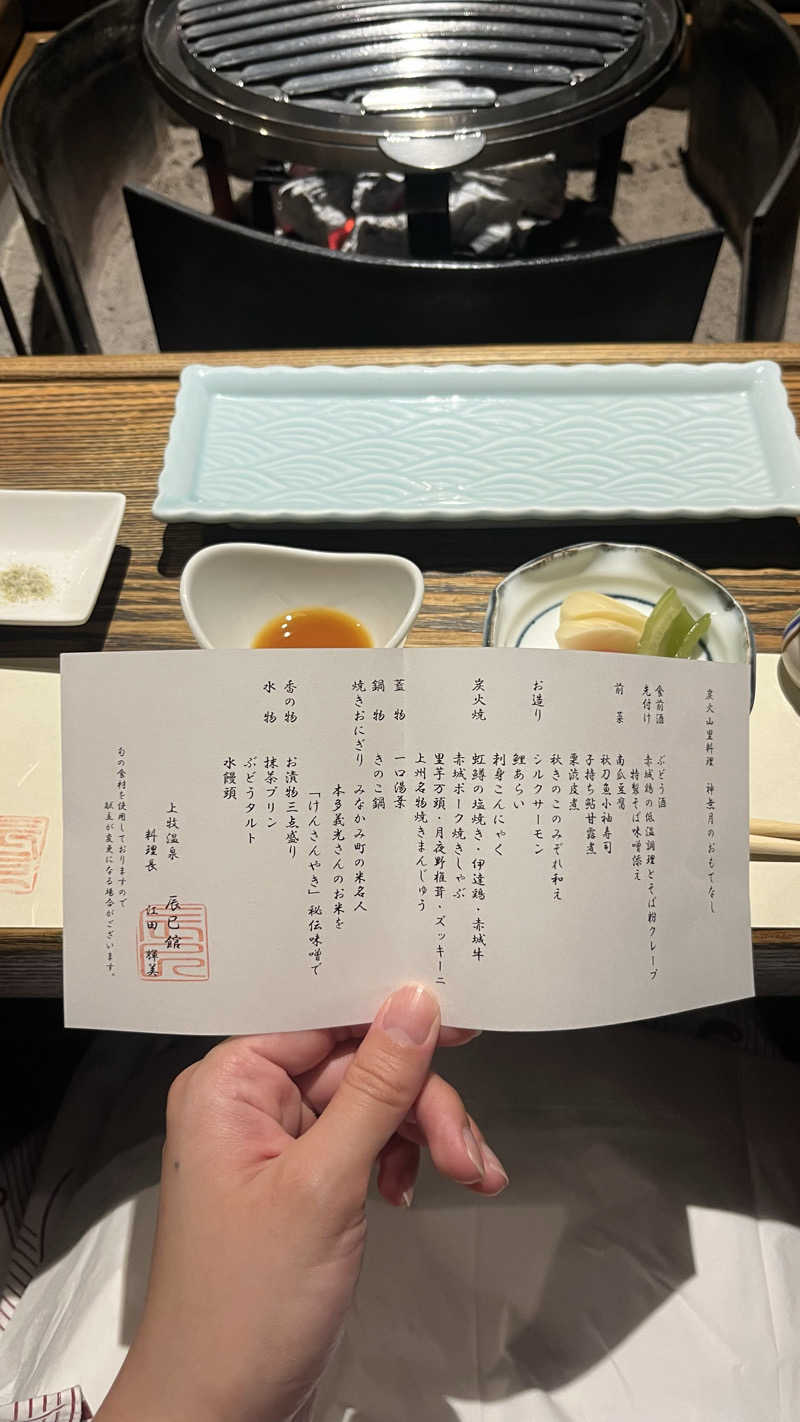 炭火山里料理　神無月のおもてなし
食前酒　ぶどう酒
先付け　赤城鶏の低温調理とそば粉クレープ
特製そば味噌添え
前　菜　南瓜豆腐
秋刀魚小袖寿司
子持ち鮎甘露煮
栗渋皮煮
秋きのこのみぞれ和え
お造り　シルクサーモン
鯉あらい
刺身こんにゃく
炭火焼　虹鱒の塩焼き・伊達鶏・赤城牛
赤城ポーク焼きしゃぶ
里芋万頭・月夜野椎茸・ズッキーニ
上州名物焼きまんじゅう
蓋　物　一口湯葉
鍋　物　きのこ鍋
焼きおにぎり　みなかみ町の米名人
本多義光さんのお米を
「けんさんやき」秘伝味噌で
香の物　お漬物三点盛り
水　物　抹茶プリン
ぶどうタルト
水饅頭
上牧温泉　辰巳館
料理長　江田　輝美
旬の食材を使用しておりますので
献立が変更になる場合がございます。